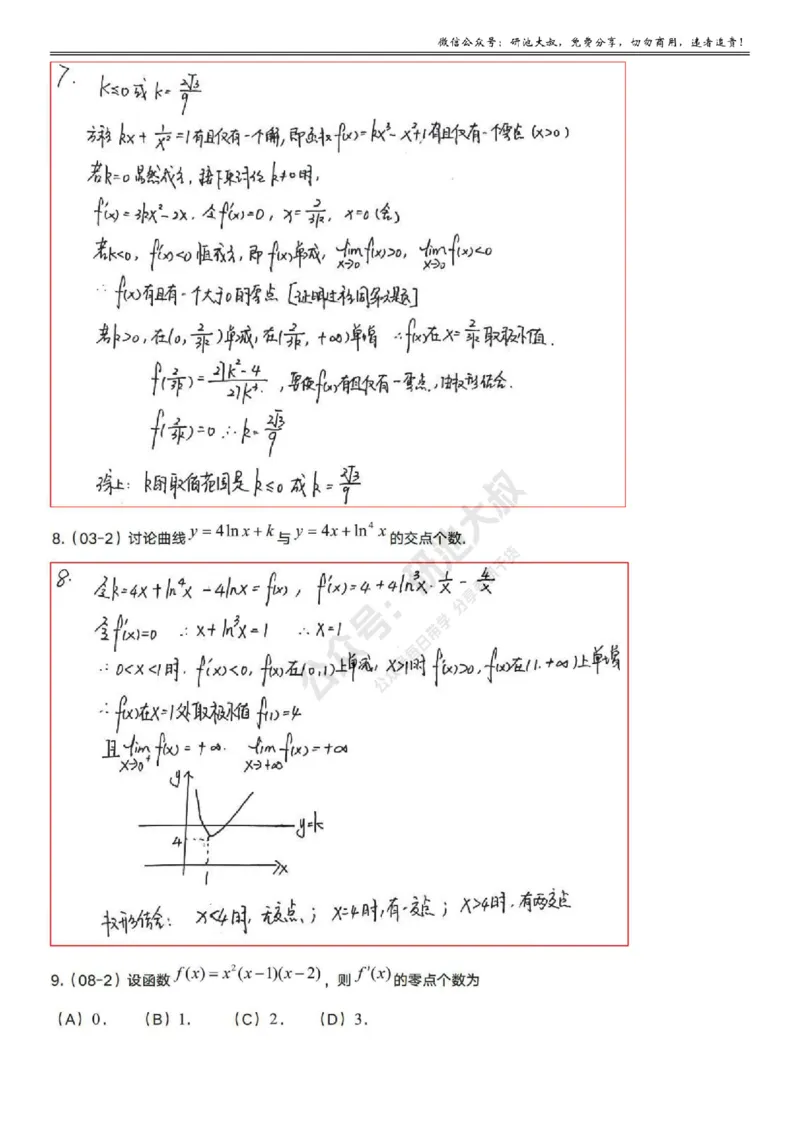 微信公众号：研池大叔，免费分享，切勿商用，违者追责！
7. k≤0或k=2√3/9
方程 kx+1/x²=1有且仅有一个解,即函数f(x)=kx³-x²+1,有且仅有一个零点(x>0)
若k=0显然成立,接下来讨论k≠0时,
f'(x)=3kx²-2x, 令f'(x)=0, x=2/3k, x=0(舍)
若k<0, f'(x)<0恒成立,即f(x)单减, lim x→0 f(x)>0, lim x→0 f(x)<0
∴ f(x)有且有一个大于0的零点 [证明过程同第六题]
若k>0,在(0, 2/3k)单减,在(2/3k, +∞)单增 ∴f(x)在x=2/3k取极小值.
f(2/3k)=27k²-4/27k², 要使f(x)有且仅有一零点,由数形结合.
f(2/3k)=0 ∴k=2√3/9
综上: k的取值范围是k≤0或k=2√3/9
8.（03-2）讨论曲线 y=4ln x+k 与 y=4x+ln⁴ x 的交点个数.
8. 令k=4x+ln⁴x-4lnx=f(x), f'(x)=4+4ln³x·1/x-4/x
令f'(x)=0 ∴x+ln³x=1 ∴x=1
∴0<x<1时, f'(x)<0, f(x)在(0,1)上单减, x>1时f'(x)>0, f(x)在(1,+∞)上单增
∴f(x)在x=1处取极小值f(1)=4
且lim x→0⁺ f(x)=+∞. lim x→+∞ f(x)=+∞
y
y=k
4
x
1
数形结合: x<4时,无交点; x=4时,有一交点; x>4时,有两交点
公众号：研池大叔
9.（08-2）设函数 f(x)=x²(x-1)(x-2)，则 f'(x)的零点个数为
（A）0． （B）1． （C）2． （D）3．